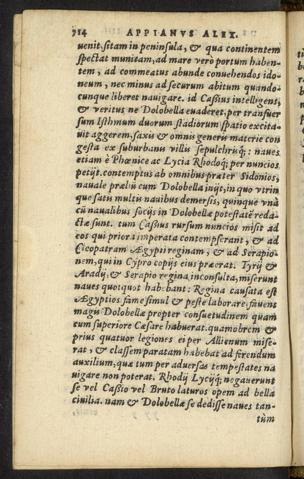 714 APPIANVS ALEX.
uenit. sitam in peninsula, & qua continentem
spectat munitam, ad mare vero portum haben-
tem, ad commeatus abunde conuehendos ido-
neum, nec minus ad securum abitum quando-
cunque liberet nauigare. id Cassius intelligens,
& veritus ne Dolobella euaderet, per transuer
sum Isthmum duorum stadiorum spatio excita-
uit aggerem, saxis & omnis generis materie con
gesta ex suburbanis villis sepulchrisq́; : naues
etiam è Phœnice ac Lycia Rhodoq́; per nuncios
petijt. contemptus ab omnibus præter Sidonios,
nauale prælium cum Dolobella inijt, in quo vtrin
que satis multis nauibus demersis, quinque vnà
cũ naualibus socijs in Dolobellæ potestatẽ reda-
ctæ sunt. tum Cassius rursum nuncios misit ad
eos qui priora imperata contempserant, & ad
Cleopatram Ægypti reginam, & ad Serapio-
nem, qui in Cypro copijs eius præerat. Tyrij &
Aradij, & Serapio regina inconsulta, miserunt
naues quotquot habebant : Regina causata est
Ægyptios fame simul & peste laborare. fauens
magis Dolobellæ propter consuetudinem quam
tum superiore Cæsare habuerat. quamobrem &
prius quatuor legiones ei per Allienum mise-
rat, & classem paratam habebat ad ferendum
auxilium, quæ tum per aduersas tempestates na
uigare non poterat. Rhodij Lycijq́; negauerunt
se vel Cassio vel Bruto laturos opem ad bella
ciuilia. nam & Dolobellæ se dedisse naues tan-
tùm